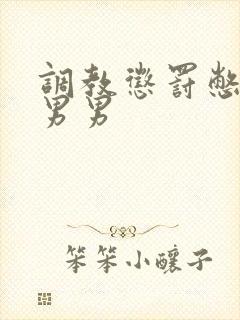 調教懲罰憋
男男
笨笨小釀子